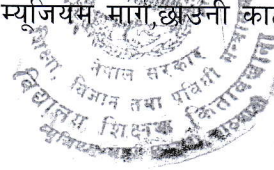 म्यूजियम मार्ग,छाउनी का
नेपाल सरकार
शिक्षा, विज्ञान तथा प्रविधि
विद्यालय शिक्षक किताबखाना